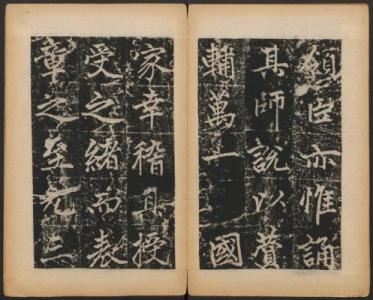 臣亦惟誦
其師說以贊
輔萬一國
家幸稽其授
受之緒而表
章之至元三